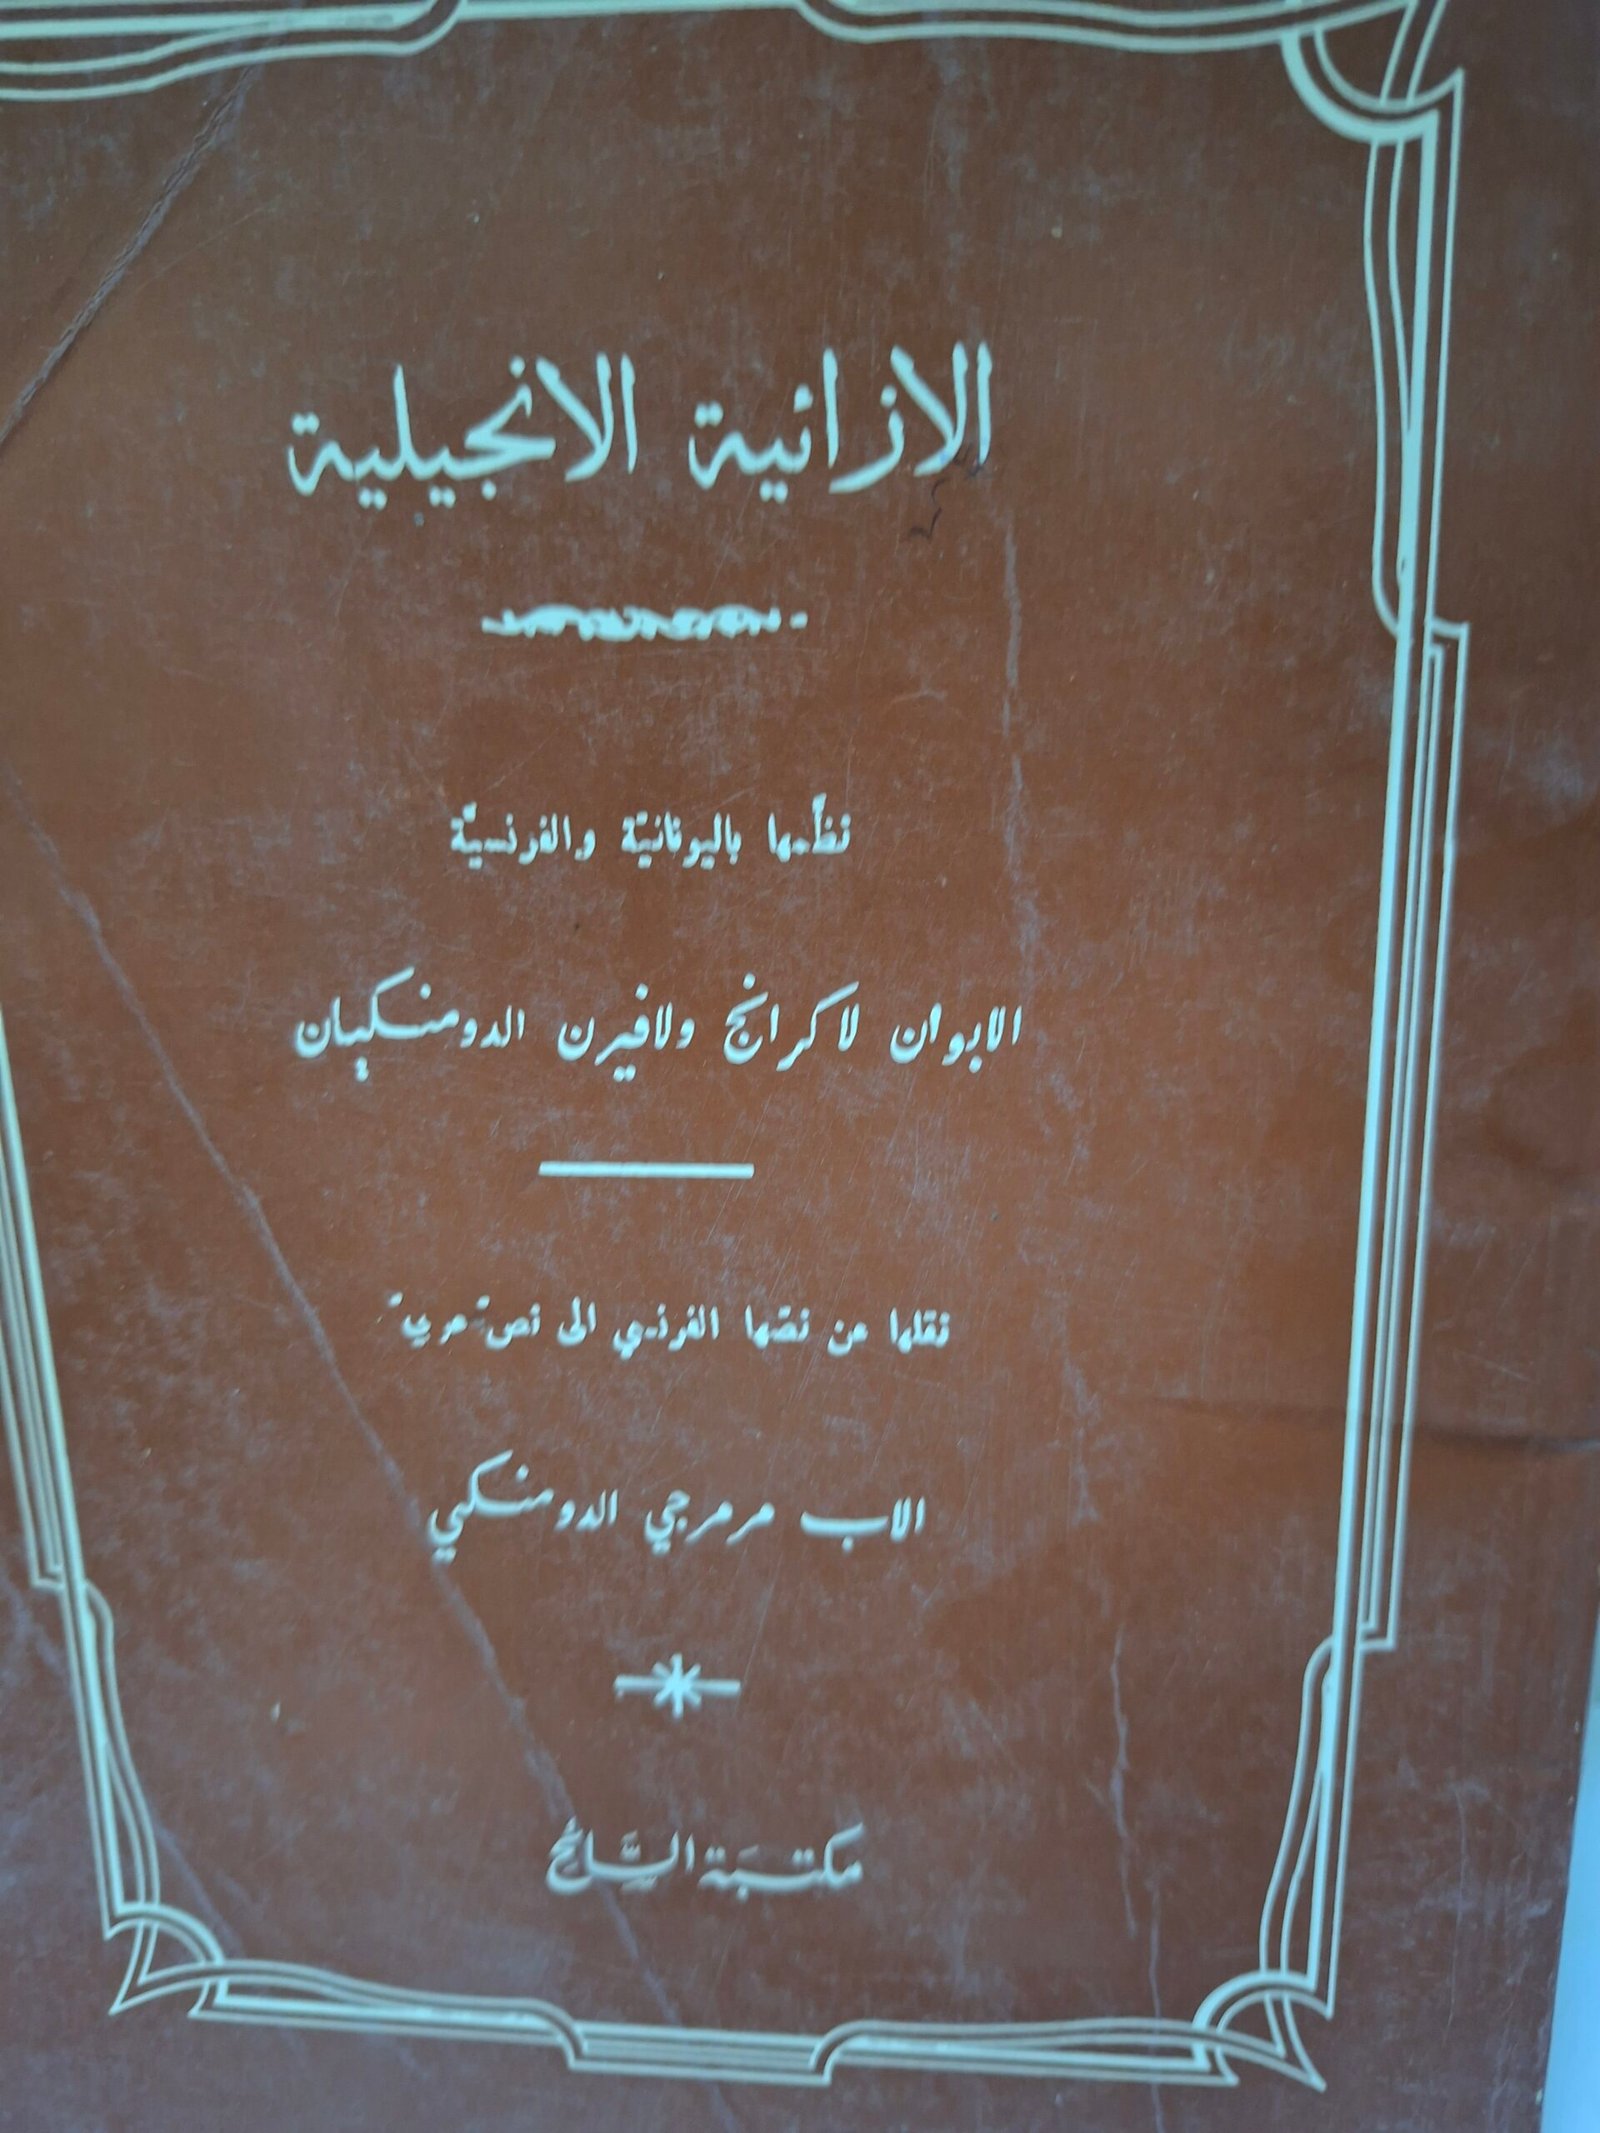 الازائية الانجيلية
نظّمها باليونانيّة والفرنسيّة
الابوان لاكرانج ولافيرن الدومنكيان
نقلها عن نصّها الفرنسي الى نصّ عربيّ
الاب مرمرجي الدومنكي
مكتبة السَّائح